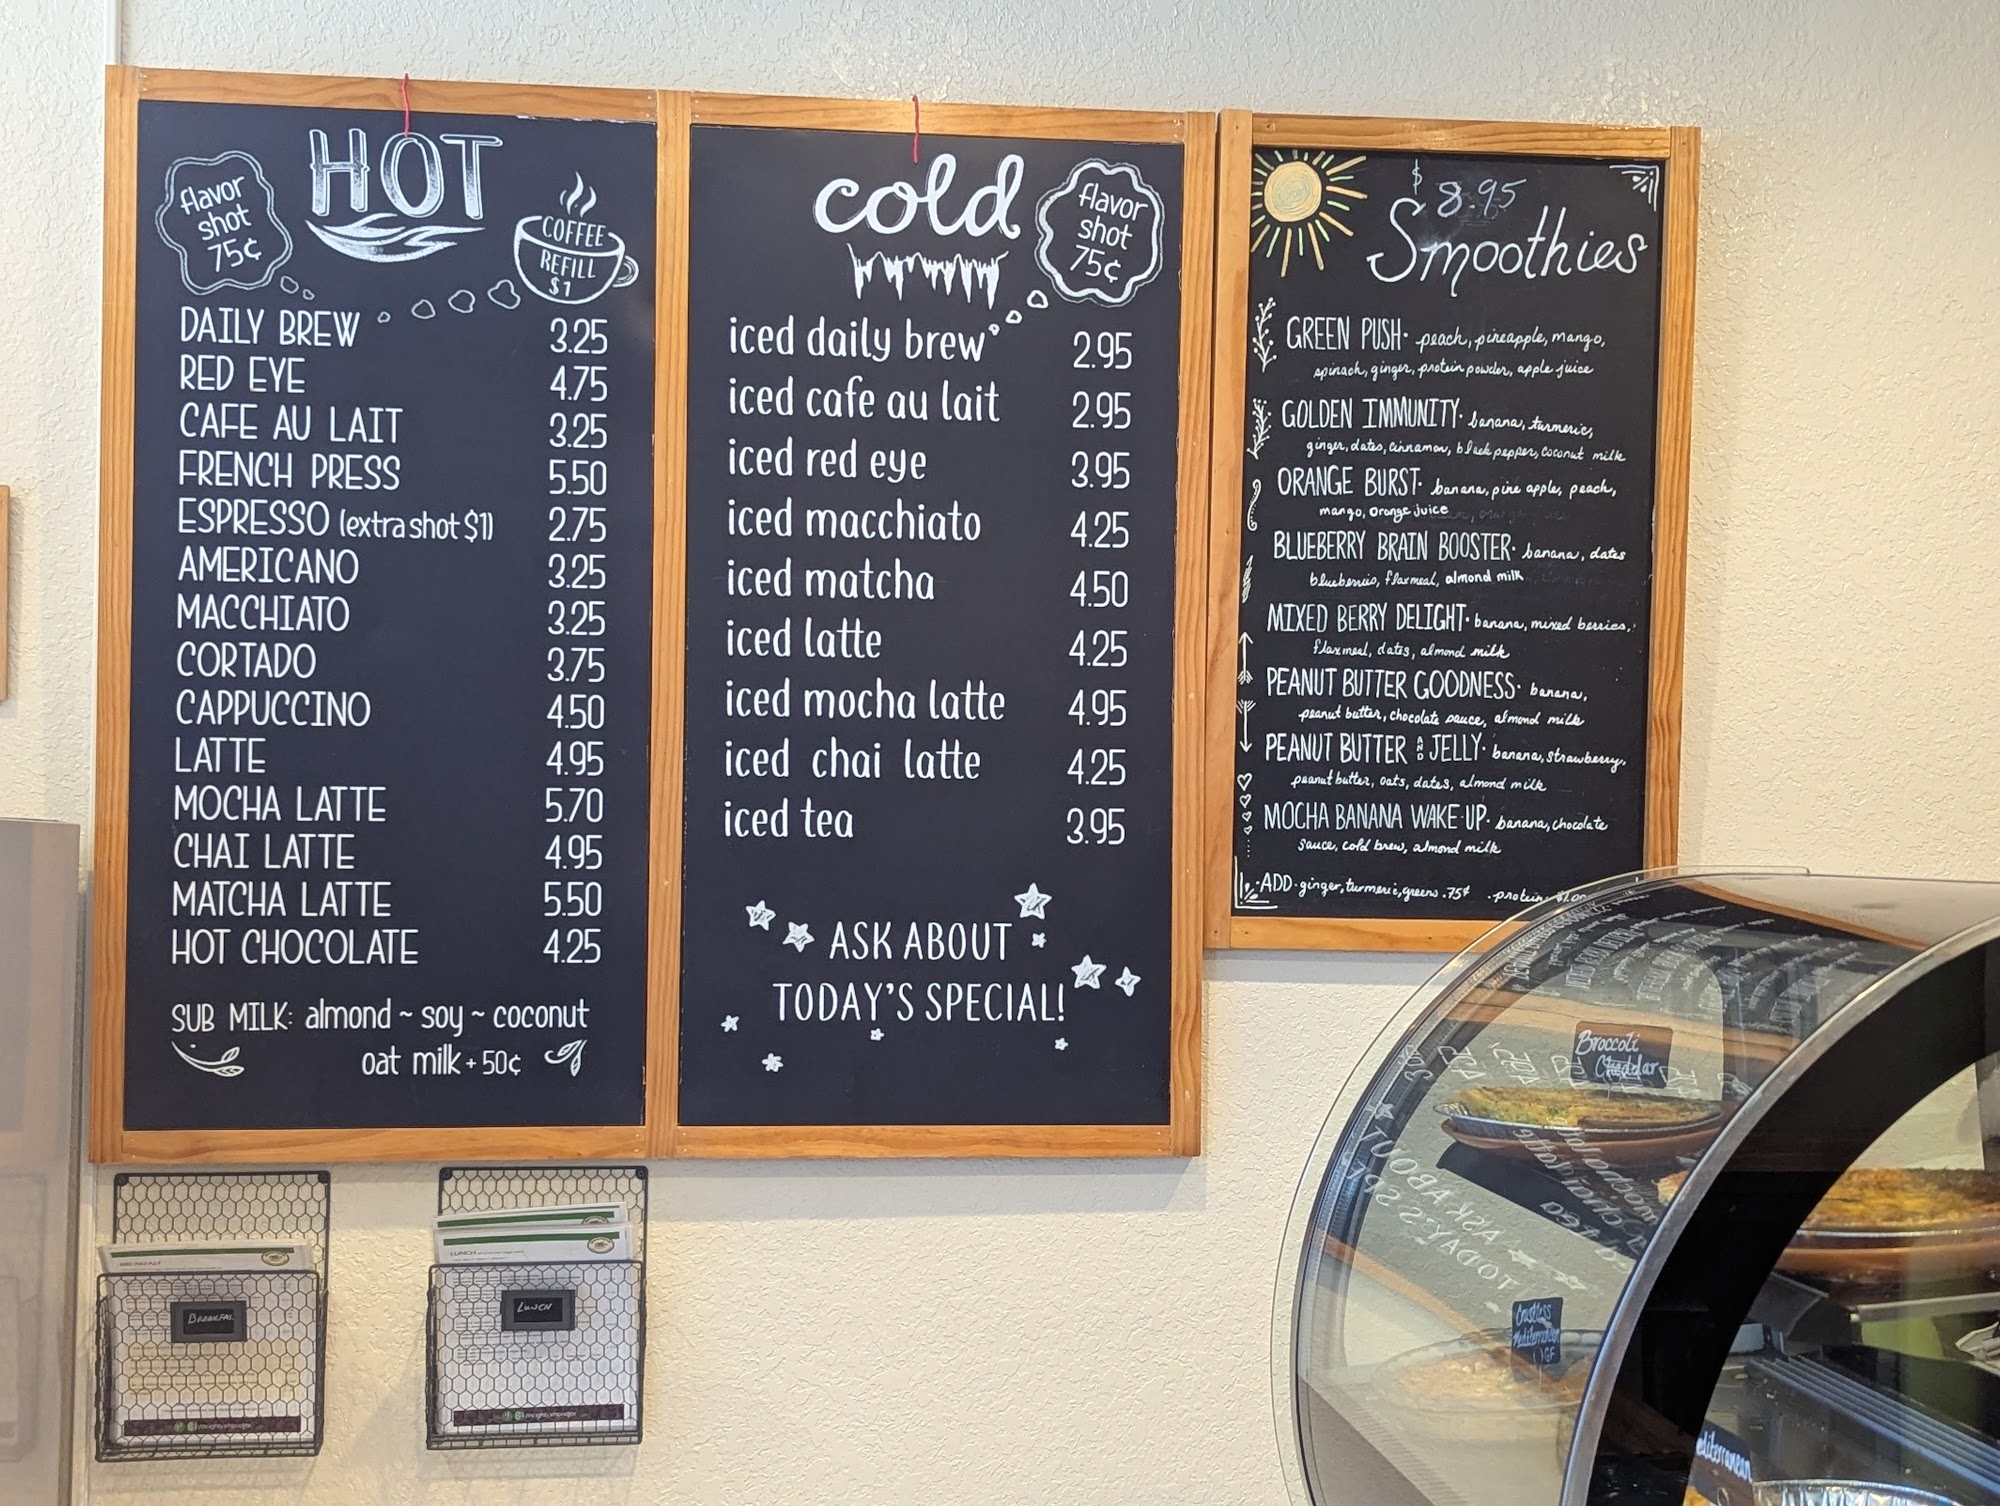 HOT
flavor
shot
75¢
COFFEE
REFILL
$1
DAILY BREW 3.25
RED EYE 4.75
CAFE AU LAIT 3.25
FRENCH PRESS 5.50
ESPRESSO (extra shot $1) 2.75
AMERICANO 3.25
MACCHIATO 3.25
CORTADO 3.75
CAPPUCCINO 4.50
LATTE 4.95
MOCHA LATTE 5.70
CHAI LATTE 4.95
MATCHA LATTE 5.50
HOT CHOCOLATE 4.25
SUB MILK: almond ~ soy ~ coconut
oat milk + 50¢
cold
flavor
shot
75¢
iced daily brew 2.95
iced cafe au lait 2.95
iced red eye 3.95
iced macchiato 4.25
iced matcha 4.50
iced latte 4.25
iced mocha latte 4.95
iced chai latte 4.25
iced tea 3.95
ASK ABOUT
TODAY'S SPECIAL!
$ 8.95
Smoothies
GREEN PUSH · peach, pineapple, mango,
spinach, ginger, protein powder, apple juice
GOLDEN IMMUNITY · banana, turmeric,
ginger, dates, cinnamon, black pepper, coconut milk
ORANGE BURST · banana, pine apple, peach,
mango, orange juice
BLUEBERRY BRAIN BOOSTER · banana, dates
blueberries, flaxmeal, almond milk
MIXED BERRY DELIGHT · banana, mixed berries,
flaxmeal, dates, almond milk
PEANUT BUTTER GOODNESS · banana,
peanut butter, chocolate sauce, almond milk
PEANUT BUTTER AND JELLY · banana, strawberry,
peanut butter, oats, dates, almond milk
MOCHA BANANA WAKE-UP · banana, chocolate
sauce, cold brew, almond milk
· ADD · ginger, turmeric, greens .75¢ · protein $1.00
Broccoli
Cheddar
Crustless
Mediterranean
GF
BREAKFAST
BREAKFAST
LUNCH
LUNCH